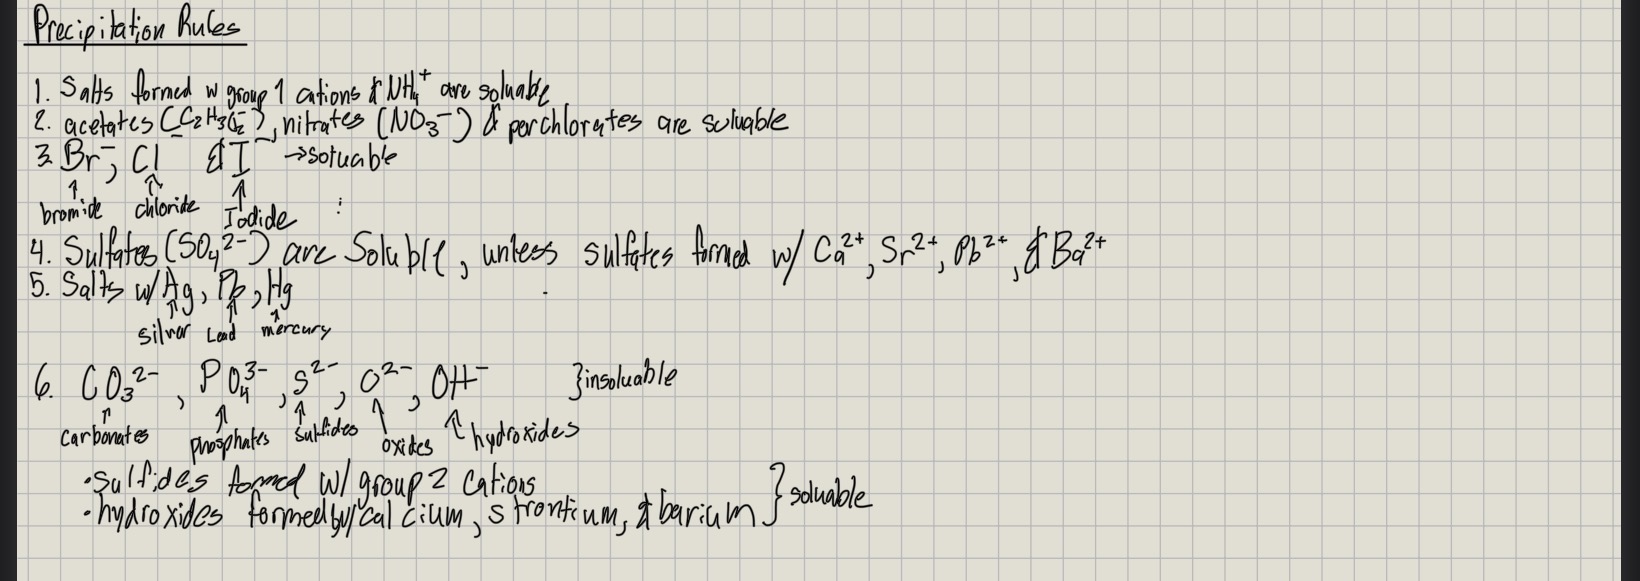 Precipitation Rules
1. Salts formed w group 1 cations & NH₄⁺ are soluable
2. acetates (C₂H₃O₂⁻), nitrates (NO₃⁻) & perchlorates are soluable
3. Br⁻, Cl⁻ & I⁻ → soluable
bromide chloride Iodide
4. Sulfates (SO₄²⁻) are Soluble, unless sulfates formed w/ Ca²⁺, Sr²⁺, Pb²⁺, & Ba²⁺
5. Salts w/ Ag, Pb, Hg
silver Lead mercury
6. CO₃²⁻, PO₄³⁻, S²⁻, O²⁻, OH⁻ } insoluable
carbonates phosphates sulfides oxides hydroxides
• sulfides formed w/ group 2 cations
• hydroxides formed by/ calcium, strontium, & barium } soluable